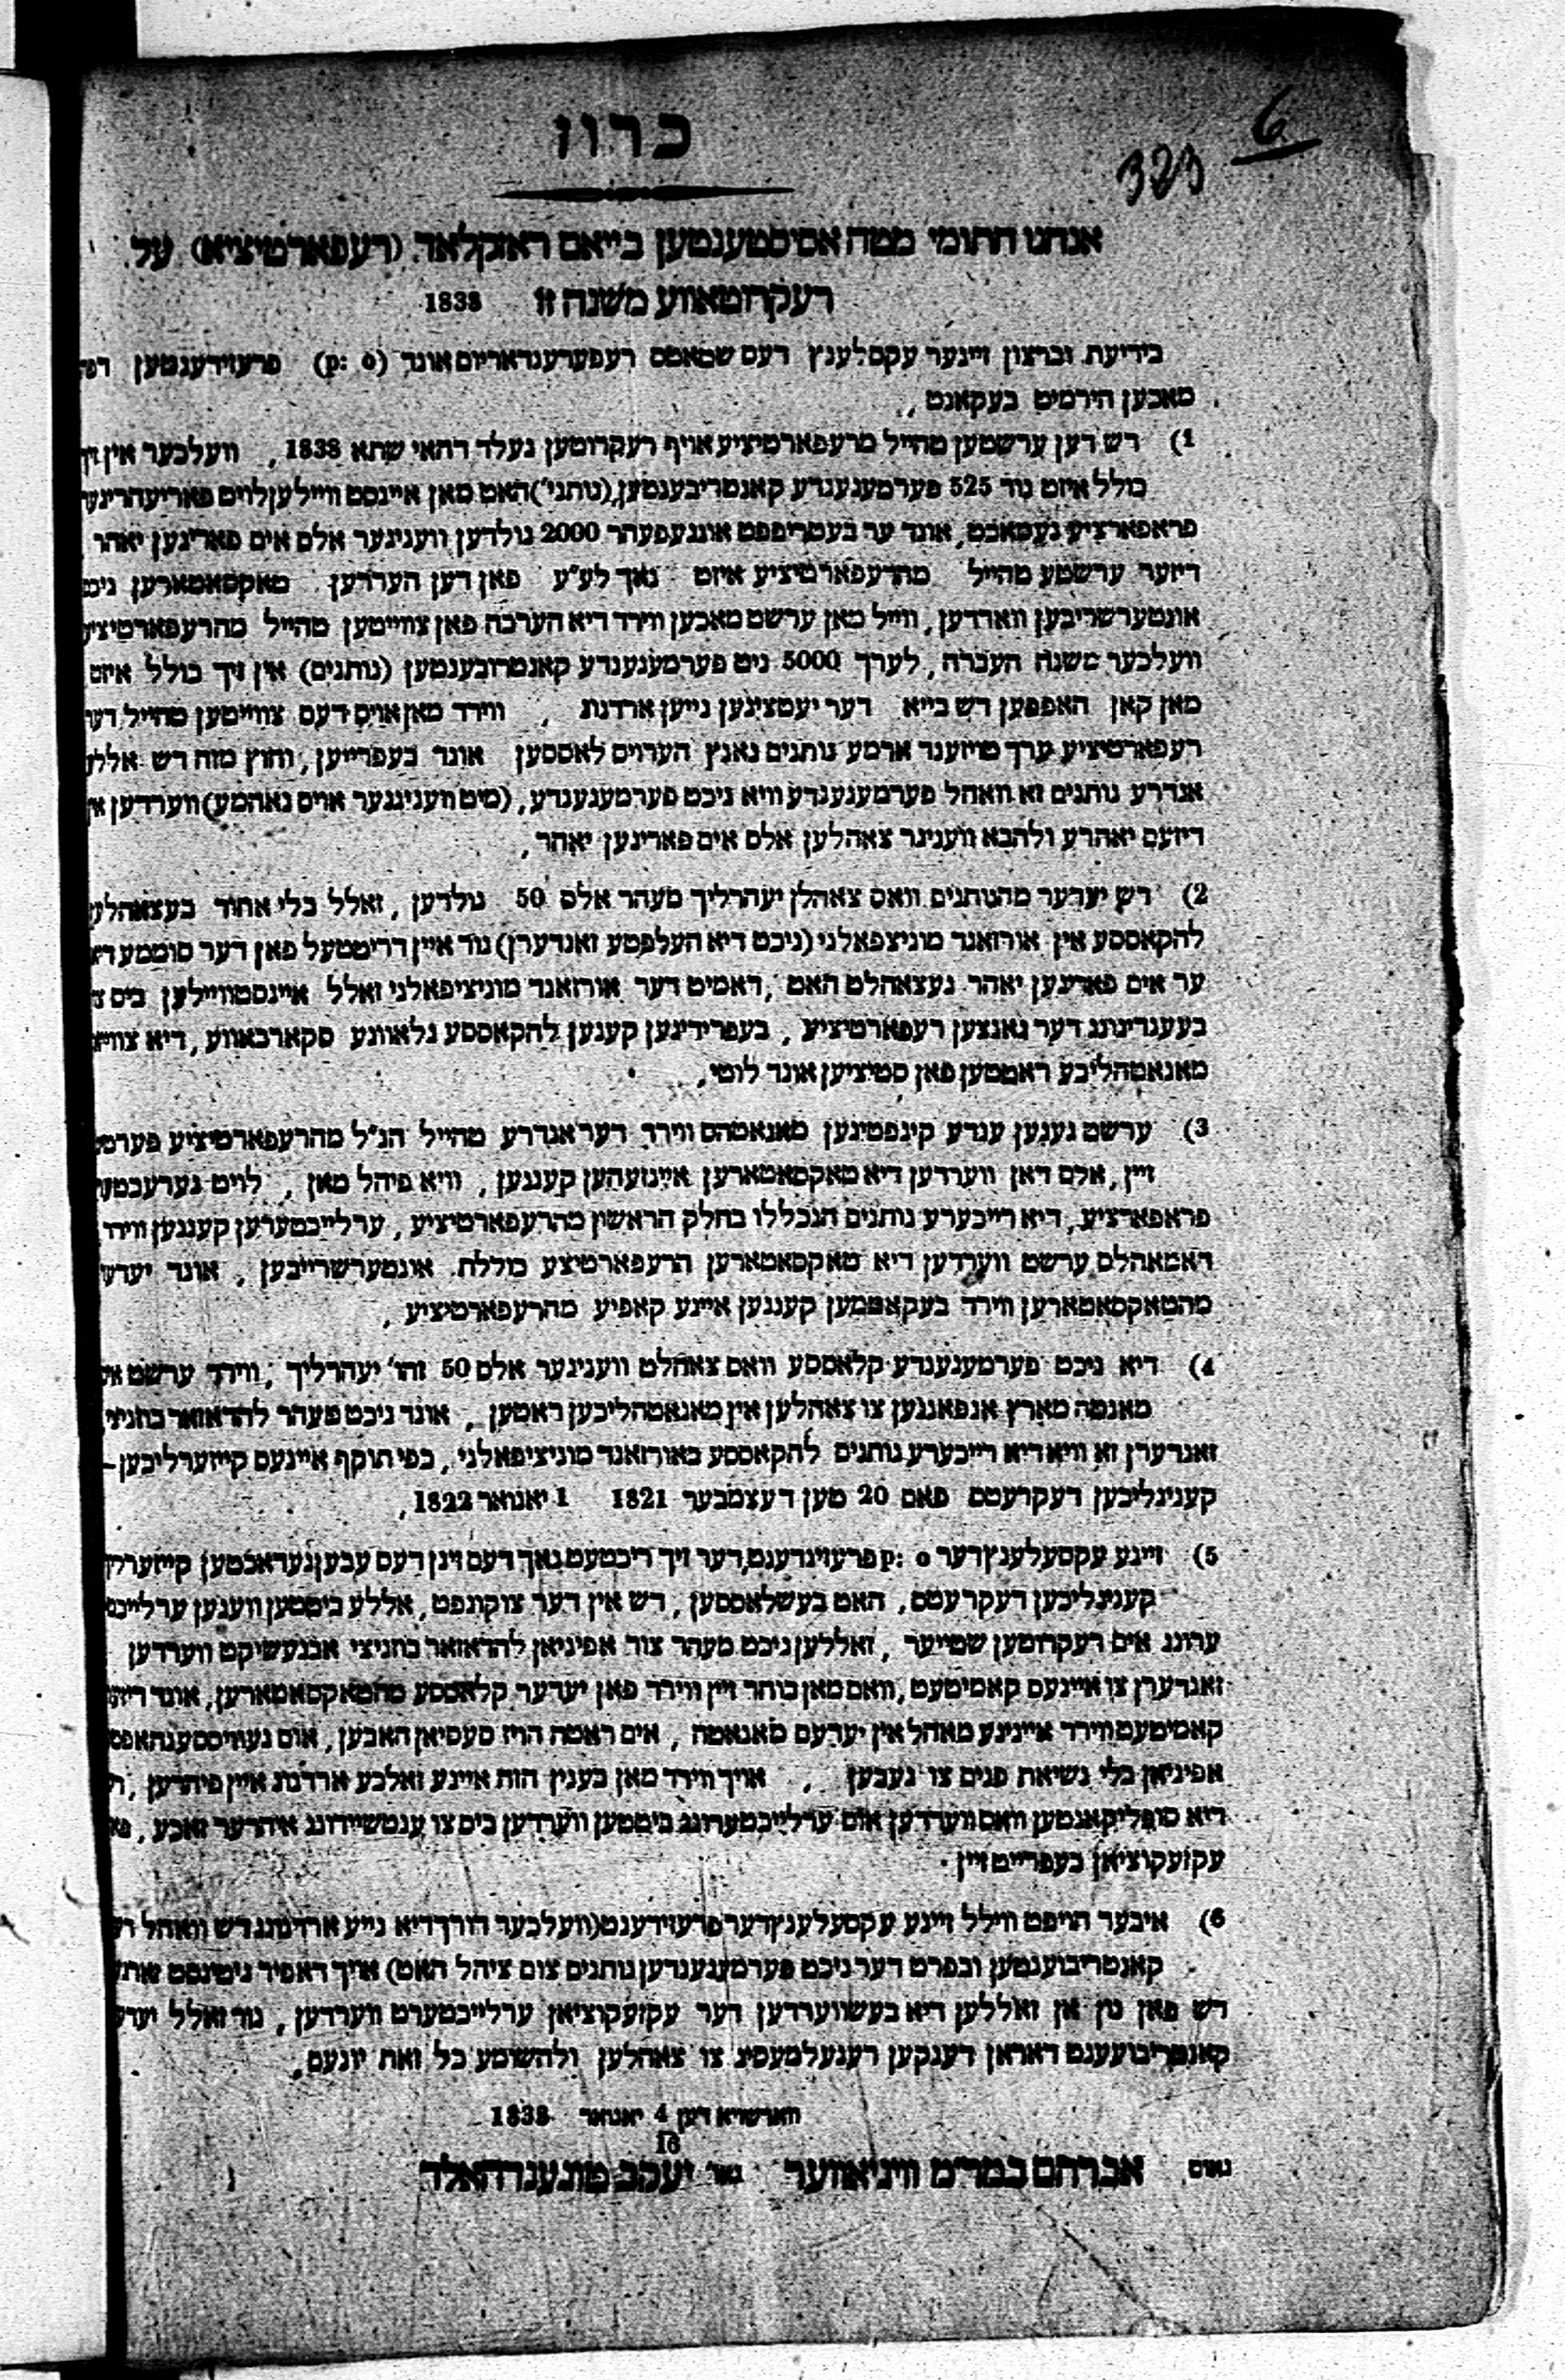 6
323
כרוז
אנחנו חתומי מטה אסיסטענטען בייאם ראזקלאד (רעפארטיציא) על
רעקרוטאווע משנה זו 1838
בידיעת וברצון זיינער עקסלענץ דעס שטאטס רעפערענדאריום אונד (p: o) פרעזידענטען
מאכען הירמיט בעקאנט,
1) דש דען ערשטען טהייל מרעפארטיציע אויף רעקרוטען געלד דהאי שתא 1838, וועלכער אין זיך
כולל איזט נור 525 פערמעגענדע קאנטריבענטען (נותני') האט מאן איינסט ווייילען לויט פאריעהריגער
פראפארציע געמאכט, אונד ער בעטריפפט אונגעפעהר 2000 גולדען ווענינער אלס אים פאריגען יאהר
דיזער ערשטע טהייל מהרעפארטיציע איזט נאך לע"ע פאן דען הערדען טאקסאטארען ניכט
אונטערשריבען ווארדען, ווייל מאן ערשט מאכען ווירד דיא הערכה פאן צווייטען טהייל מהרעפארטיציע
וועלכער משנה העברה, לערך 5000 ניט פערמעגענדע קאנטרובענטען (נותנים) אין זיך כולל איזט
מאן קאן האפפען דש בייא דער יעטציגען נייען ארדנוג, ווירד מאן אויס דעם צווייטען טהייל דער
רעפארטיציע ערך טויזענד ארמע נותנים גאנץ הערויס לאססען אונד בעפרייען, וחוץ מזה דש אללע
אנדרע נותנים זא וואהל פערמעגענדע וויא ניכט פערמעגענדע, (מיט וועניגער אויס נאהמע) ווערדען אין
דיזעם יאהרע ולהבא ווענינר צאהלען אלס אים פאריגען יאהר,
2) דש יעדער מהנותנים וואס צאהלן יעהרליך מעהר אלס 50 גולדען, זאלל בלי אחור בעצאהלען
להקאססע אין אורזאנד מוניציפאלני (ניכט דיא העלפטע זאנדערן) נור איין דריטטעל פאן דער סוממע דיא
ער אים פאריגען יאהר געצאהלט האט, דאמיט דער אורזאנד מוניציפאלני זאלל איינסטוויילען ביס צו
בעענדיגונג דער גאנצען רעפארטיציע, בעפרידיגען קענען להקאססע גלאוונע סקארבאווע, דיא צווייא
מאנאטהליכע ראטטען פאן סטיציען אונד לוטי,
3) ערשט געגען ענדע קינפטיגען מאנאטהס ווירד דער אנדרע טהייל הנ"ל מהרעפארטיציע פערטיג
זיין, אלס דאן ווערדען דיא טאקסאטארען איינזעהען קענען, וויא פיהל מאן, לויט גערעכטער
פראפארציע, דיא רייכערע נותנים הנכללו בחלק הראשון מהרעפארטיציע, ערלייכטערען קענען ווירד,
דאמאהלס ערשט ווערדען דיא טאקסאטארען הרעפארטיצע כוללת אונטערשרייבען, אונד יעדער
מהטאקסאטארען ווירד בעקאממען קענען איינע קאפיע מהרעפארטיציע,
4) דיא ניכט פערמעגענדע קלאססע וואס צאהלט וועניגער אלס 50 זהו' יעהרליך, ווירד ערשט אין
מאנטה מארץ אנפאנגען צו צאהלען אין מאנאטהליכען ראטען, אונד ניכט מעהר להדאזאר בחניצי
זאנדערן זא וויא דיא רייכערע נותנים להקאססע באורזאנד מוניציפאלני, כפי תוקף איינעס קייזערליכען-
קעניגליכען דעקרעטס פאם 20 טען דעצמבער 1821 1 יאנואר 1822,
5) זיינע עקסעלענץ דער p: o פרעזידענט, דער זיך ריכטעט נאך דעם זינן דעס עבען געדאכטען קייזערליך
קעניגליכען דעקרעטס, האט בעשלאססען, דש אין דער צוקונפט, אללע ביטטען וועגען ערלייכט
ערונג אים רעקרוטען שטייער, זאללען ניכט מעהר צור אפיניאן להדאזאר בחניצי אבגעשיקט ווערדען
זאנדערן צו איינעם קאמיטעט, וואס מאן בוחר זיין ווירד פאן יעדער קלאססע מהטאקסאטארען, אונד דיזער
קאמיטעט ווירד אייניגע מאהל אין יעדעם מאנאטה, אים ראטה הויז סעסיאן האבען, אום געוויססענהאפט
אפיניאן בלי נשיאת פנים צו געבען, אויך ווירד מאן בענין הזה איינע זאלכע ארדנוג איין פיהרען,
דיא סופליקאנטען וואס ווערדען אום ערלייכטערונג ביטטען ווערדען ביס צו ענטשיידונג איהרער זאכע,
עקזעקוציאן בעפרייט זיין.
6) איבער הויפט ווילל זיינע עקסעלענץ דער פרעזידענט (וועלכער דורך דיא נייע ארדנונג דש וואהל דער
קאנטריבוענטען ובפרט דער ניכט פערמעגענדען נותנים צום ציהל האט) אויך דאפיר
דש פאן נון אן זאללען דיא בעשווערדען דער עקזעקוציאן ערלייכטערט ווערדען, נור זאלל יעדער
קאנטריבועענט דאראן דענקען רעגעלמעסיג צו צאהלען ולהשומע כל זאת יונעם,
ווארשויא דען 4 יאנואר 1838
16
נאום אברהם במר"מ וויניאווער נאו' יעקב טוגענדהאלד